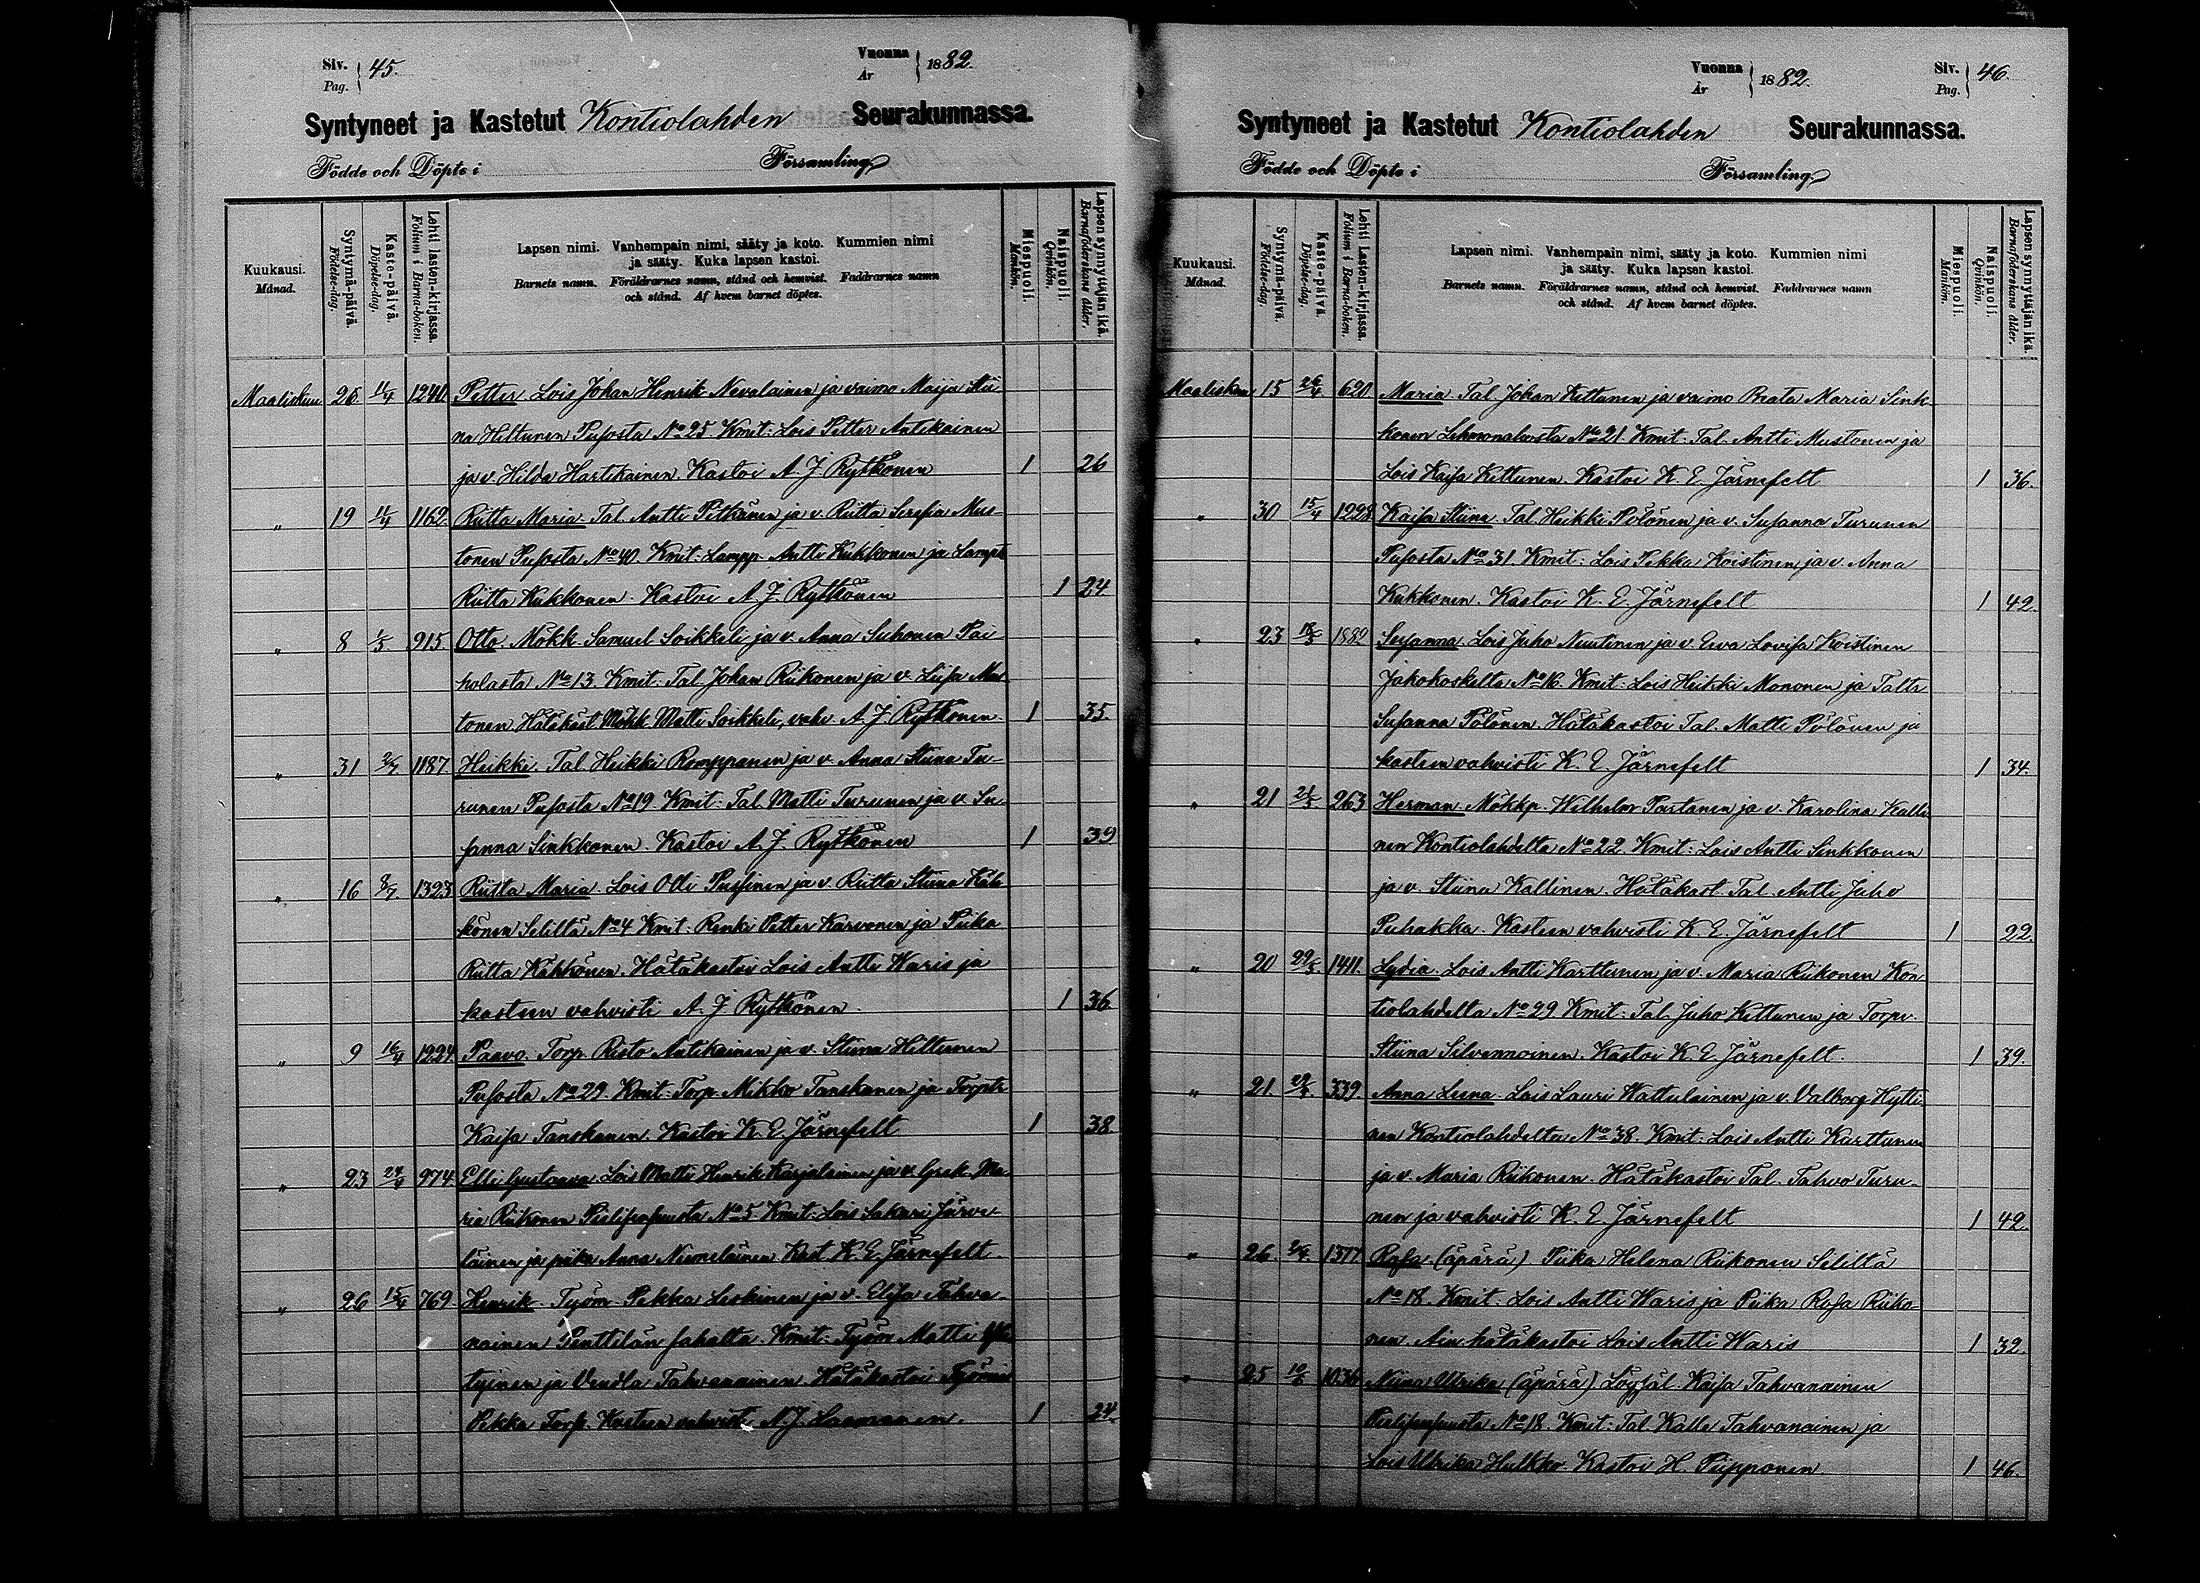 Siv. 45.
Pag.
Vuonna 1882.
År
Syntyneet ja Kastetut Kontiolahden Seurakunnassa.
Födde och Döpte i Församling.
Kuukausi. Månad.
Syntymä-päivä. Födelse-dag.
Kaste-päivä. Döpelse-dag.
Lehti lasten-kirjassa. Folium i Barna-boken.
Lapsen nimi. Vanhempain nimi, sääty ja koto. Kummien nimi
ja sääty. Kuka lapsen kastoi.
Barnets namn. Föräldrarnes namn, stånd och hemvist. Faddrarnes namn
och stånd. Af hvem barnet döptes.
Miespuoli. Mankön.
Naispuoli. Qvinkön.
Lapsen synnyttäjän ikä. Barnaföderskans ålder.
Maaliskuu 25 11/4 1240. Petter Lois Johan Henrik Nevalainen ja vaimo Maija Stii
na Hiltunen Puso sta No 25 Kmit: Lois Petter Antikainen
ja v. Hilda Hartikainen. Kastoi A. J. Rytkönen 1 26
" 19 11/4 1162. Riitta Maria Tal. Antti Pitkänen ja v. Riitta Serefia Mus-
tonen Pusosta No 40. Kmit: Lampp. Antti Kukkonen ja Lampts
Riitta Kukkonen. Kastoi A. J. Rytkönen 1 24
" 8 1/5 915. Otto Mökk. Samuel Soikkeli ja v. Anna Suhonen Pai
holasta No 13. Kmit: Tal. Johan Riikonen ja v. Liisa Mus
tonen. Hätäkast. Mökk. Matti Soikkeli, vahv. A. J. Rytkönen. 1 35.
" 31 2/7 1187 Heikki. Tal. Heikki Romppanen ja v. Anna Stiina Tu-
runen Pusosta No 19 Kmit: Tal. Matti Turunen ja v. Su-
sanna Sinkkonen. Kastoi A. J. Rytkönen 1 39
" 16 8/7. 1323 Riitta Maria. Lois Olli Pussinen ja v. Riitta Stiina Käh
könen Seliltä No 4 Kmit: Renki Petter Karvonen ja Piika
Riitta Kähkönen. Hätäkastoi Lois Antti Waris ja
kasteen vahvisti A. J. Rytkönen. 1 36
" 9 16/4 1224. Paavo. Torp. Risto Antikainen ja v. Stiina Hiltunen
Pusosta No 29. Kmit: Torp. Mikko Tanskanen ja Torpts
Kaisa Tanskanen. Kastoi K. E. Järnefelt 1 38
" 23 24/4 974 Elli Gustaava Lois Matti Henrik Karjalainen ja v. Greta Ma
ria Riikonen Pielisensuusta No 5. Kmit: Lois Sakari Järve
läinen ja piika Anna Nieneläinen Kast. K. E. Järnefelt.
" 26 15/4 769 Henrik. Työm. Pekka Leskinen ja v. Elisa Tahva
nainen Penttilän sahalta. Kmit: Työm. Matti
tyinen ja Vendla Tahvanainen. Hätäkastoi Työmies
Pekka Torp. Kasteen vahvisti N. J. Laamanen. 1 24.
Vuonna 1882.
År
Siv. 46.
Pag.
Syntyneet ja Kastetut Kontiolahden Seurakunnassa.
Födde och Döpte i Församling.
Kuukausi. Månad.
Syntymä-päivä. Födelse-dag.
Kaste-päivä. Döpelse-dag.
Lehti Lasten-kirjassa. Folium i Barna-boken.
Lapsen nimi. Vanhempain nimi, sääty ja koto. Kummien nimi
ja sääty. Kuka lapsen kastoi.
Barnets namn. Föräldrarnes namn, stånd och hemvist. Faddrarnes namn
och stånd. Af hvem barnet döptes.
Miespuoli. Mankön.
Naispuoli. Qvinkön.
Lapsen synnyttäjän ikä. Barnaföderskans ålder.
Maaliskuu 15 26/4 620 Maria Tal. Johan Kettunen ja vaimo Beata Maria Sink
konen Lehmonaholta No 21. Kmit: Tal. Antti Mustonen ja
Lois Kaisa Kettunen. Kastoi K. E. Järnefelt 1 36.
" 30 15/4 1228 Kaisa Stiina. Tal. Heikki Pölönen ja v. Susanna Turunen
Pusosta No 31 Kmit: Lois Pekka Koistinen ja v. Anna
Kukkonen. Kastoi K. E. Järnefelt 1 42.
" 23 1882 Susanna. Lois Juho Nuutinen ja v. Eeva Lovisa Koistinen
Jakokoskelta No 16. Kmit: Lois Heikki Mononen ja Taltr
Susanna Pölönen. Hätäkastoi Tal. Matti Pölönen ja
kasteen vahvisti K. E. Järnefelt 1 34.
" 21 21/5 263 Herman. Mökkp. Wilhelm Partanen ja v. Karolina Kalli
nen Kontiolahdelta No 22. Kmit: Lois Antti Sinkkonen
ja v. Stiina Kallinen. Hätäkast. Tal. Antti Juho
Puhakka. Kasteen vahvisti K. E. Järnefelt 1 22.
" 20 29/5 1411. Lydia. Lois Antti Karttunen ja v. Maria Riikonen Kon
tiolahdelta No 29 Kmit: Tal. Juho Kettunen ja Torpv.
Stiina Silvennoinen. Kastoi K. E. Järnefelt. 1 39.
" 21. 339. Anna Leena Lois Lauri Wattulainen ja v. Valborg Hytti
nen Kontiolahdelta No 38. Kmit: Lois Antti Karttunen
ja v. Maria Riikonen. Hätäkastoi Tal. Tahvo Turu-
nen ja vahvisti K. E. Järnefelt 1 42
" 26. 1377. Rosa (äpärä) Piika Helena Riikonen Seliltä
No 18. Kmit: Lois Antti Waris ja Piika Rosa Riiko-
nen. Ain. hätäkastoi Lois Antti Waris 1 32.
" 25 10/6 1036 Niina Ulrika (äpärä) Löysäl. Kaisa Tahvanainen
Pielisensuusta No 18. Kmit: Tal. Kalle Tahvanainen ja
Lois Ulrika Hulkko. Kastoi H. Piipponen 1 46.